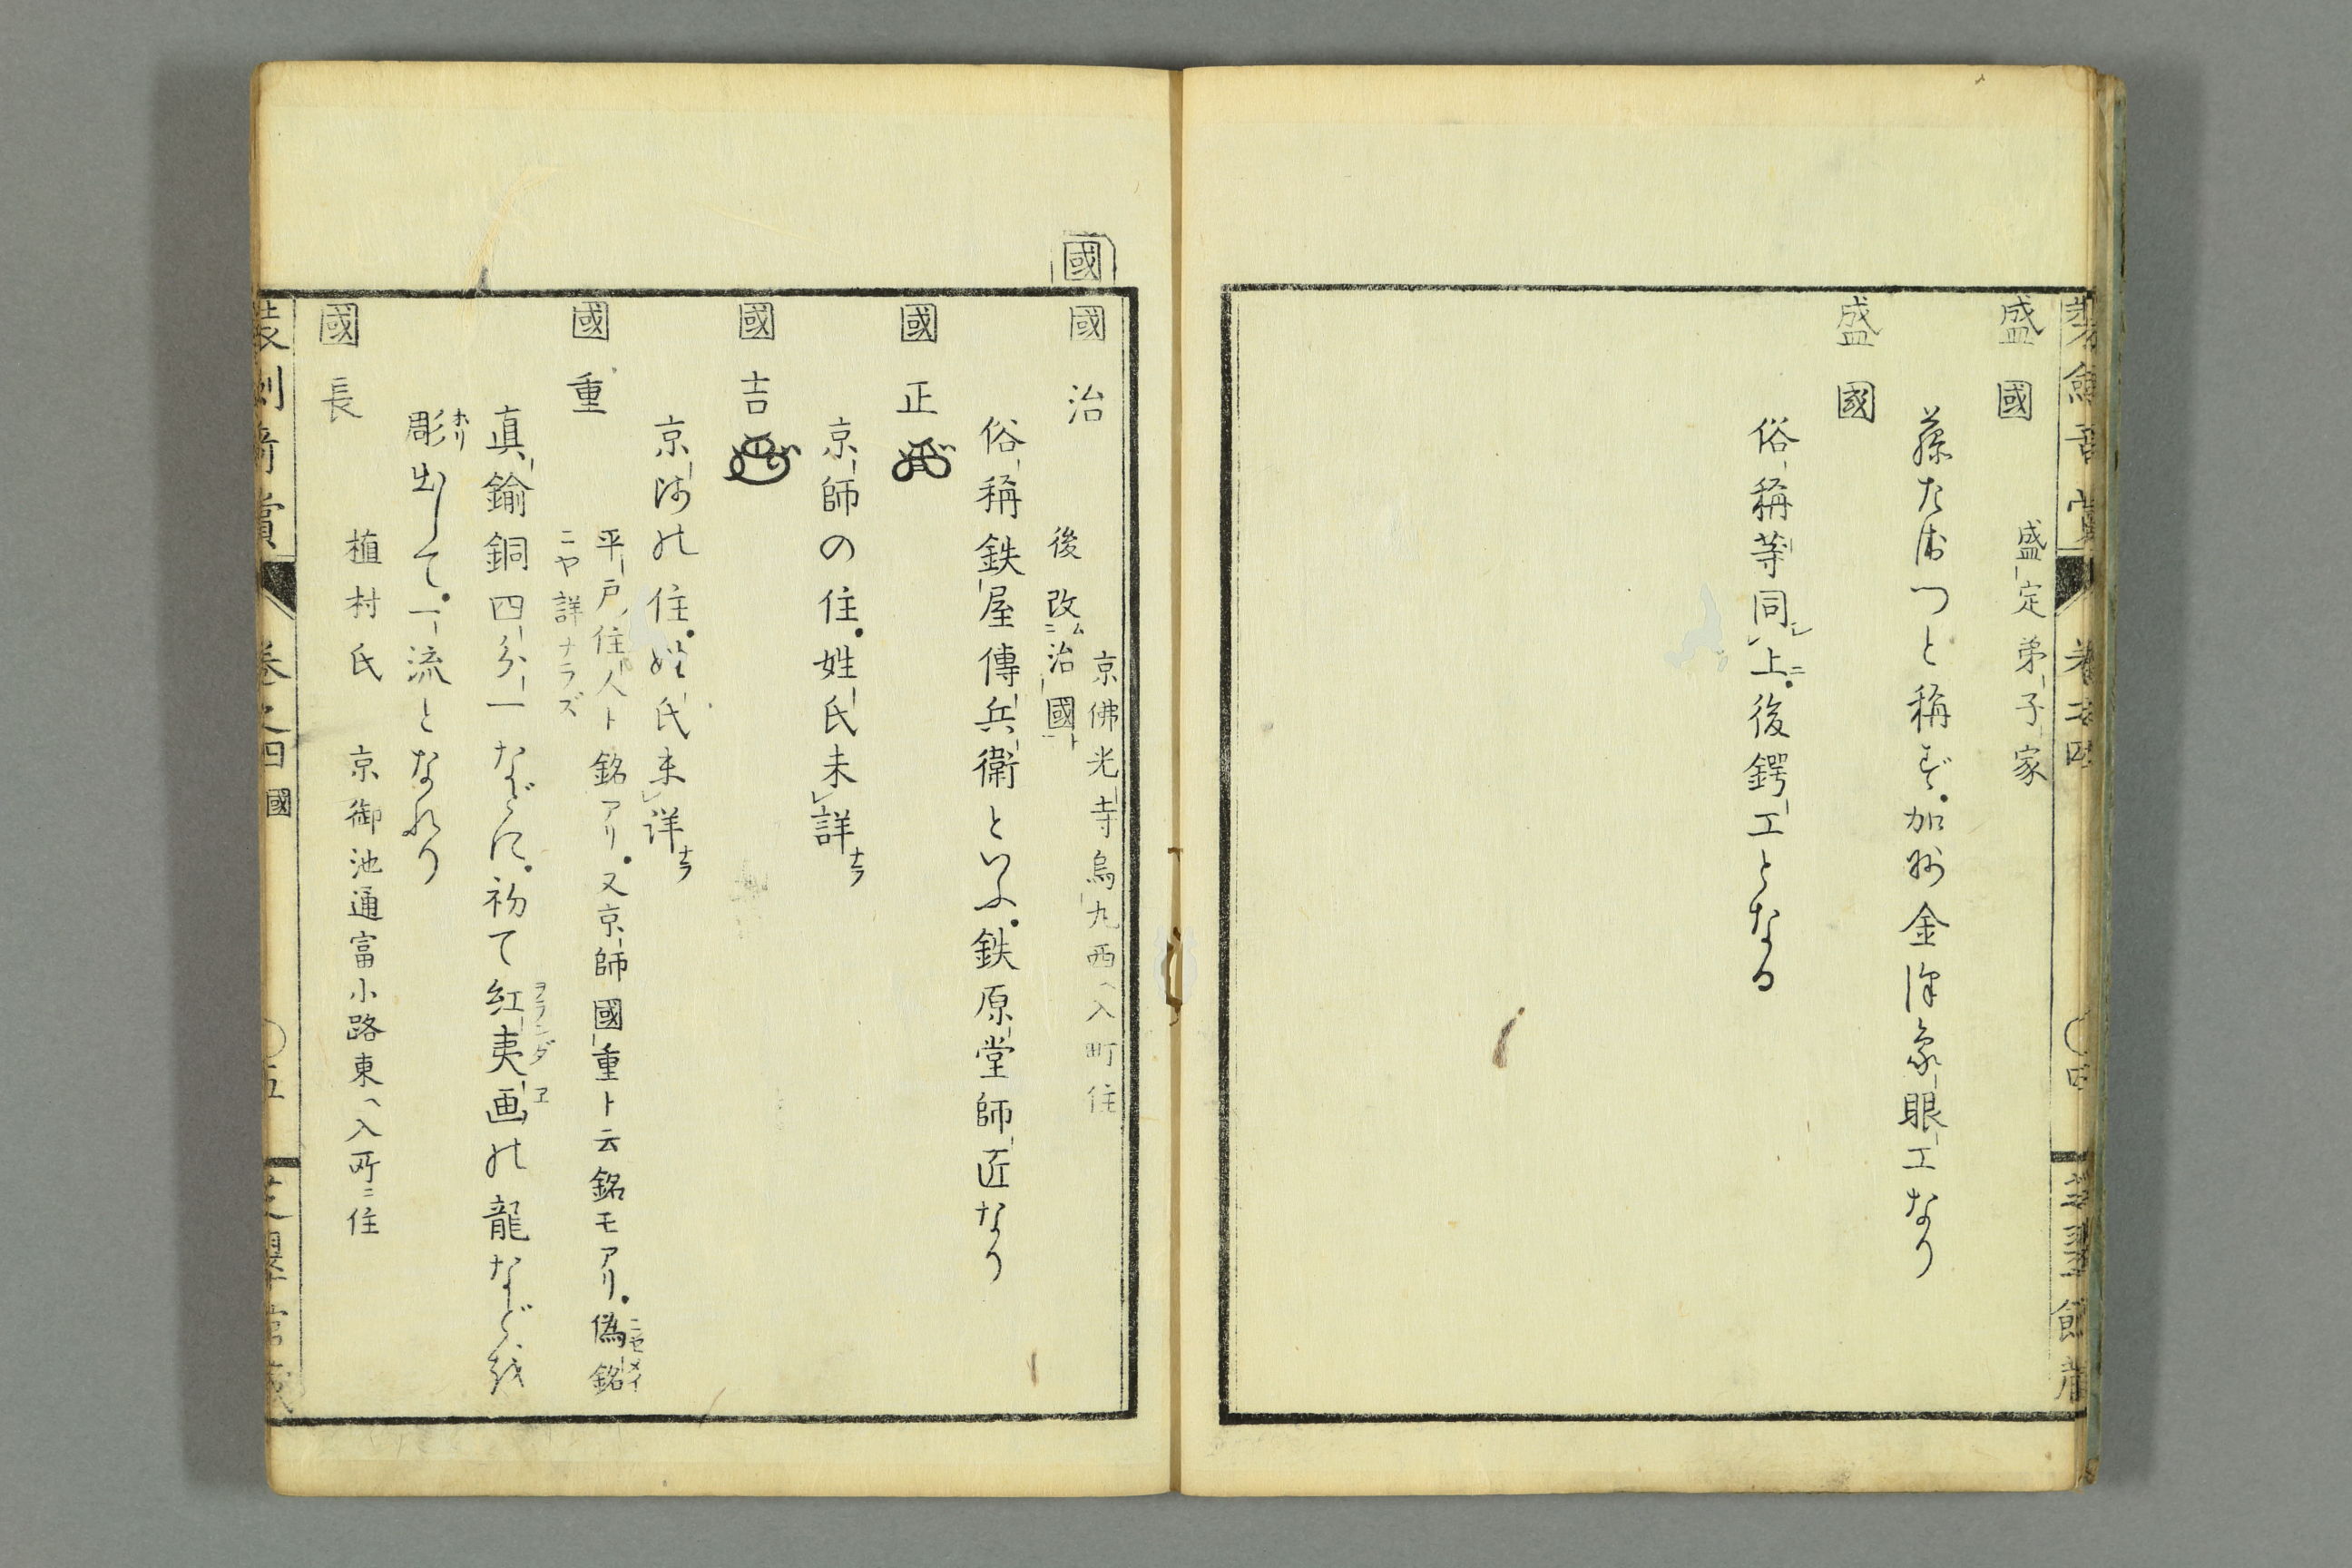 盛國　盛定弟子家
藤たはつと称ず。加州金澤象眼工なり
盛國
俗稱等同レ上ニ。後鍔工となる
國
國治　京佛光寺烏丸西ヘ入町住
後改ム二治國一ト
俗稱鉄屋傳兵衛といふ。鉄原堂師匠なり
國正
京師の住。姓氏未レ詳ナラ
國吉
京师の住。姓氏未レ详ナラ
國重　平戸ノ住人ト銘アリ。又京師國重ト云銘モアリ。偽銘ニセメイ
ニヤ詳ナラズ
真鍮銅四分一などに。初て紅夷画ヲランダヱの龍などを
彫ホリ出して。一流となれり
國長　植村氏　京御池通富小路東ヘ入所ニ住
装剣奇賞　巻之四　國　〇五　芝翠館蔵